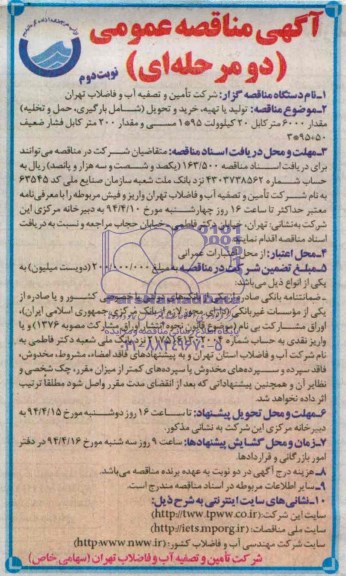 آگهی مناقصه عمومی
(دو مرحله‌ای)
نوبت دوم
۱-نام دستگاه مناقصه گزار: شرکت تأمین و تصفیه آب و فاضلاب تهران
۲-موضوع مناقصه: تولید یا تهیه، خرید و تحویل (شامل بارگیری، حمل و تخلیه)
مقدار ۶۰۰۰ متر کابل ۲۰ کیلوولت ۹۵*۱ مسی و مقدار ۲۰۰ متر کابل فشار ضعیف
۳*۹۵+۵۰
۳-مهلت و محل دریافت اسناد مناقصه: متقاضیان شرکت در مناقصه می‌توانند
برای دریافت اسناد مناقصه ۱۶۳/۵۰۰ (یکصد و شصت و سه هزار و پانصد) ریال به
حساب شماره ۴۳۰۷۳۷۸۵۶۲ نزد بانک ملت شعبه سازمان صنایع ملی کد ۶۳۵۴۵
به نام شرکت تأمین و تصفیه آب و فاضلاب تهران واریز و فیش مربوطه را با معرفی‌نامه
معتبر حداکثر تا ساعت ۱۶ روز چهارشنبه مورخ ۹۴/۴/۱۰ به دبیرخانه مرکزی این
شرکت به‌نشانی: تهران، خیابان فاطمی، خیابان حجاب مراجعه و نسبت به دریافت
اسناد مناقصه اقدام نمایند.
۴-محل اعتبار: از محل اعتبارات عمرانی
۵-مبلغ تضمین شرکت در مناقصه: به مبلغ ۲۰۰/۰۰۰/۰۰۰ (دویست میلیون) به
یکی از انواع ذیل می‌باشد:
ضمانتنامه بانکی صادره از یکی از بانک‌های کشور و یا صادره از
یکی از مؤسسات غیربانکی دارای مجوز لازم از بانک مرکزی جمهوری اسلامی ایران)،
اوراق مشارکت بی نام (موضوع قانون نحوه انتشار اوراق مشارکت مصوبه ۱۳۷۶) و یا
واریز نقدی به حساب شماره نزد بانک ملی شعبه دکتر فاطمی به
نام شرکت آب و فاضلاب استان تهران و به پیشنهادهای فاقد امضاء، مشروط، مخدوش،
فاقد سپرده و سپرده‌های مخدوش یا سپرده‌های کمتر از میزان مقرر، چک شخصی و
نظایر آن و همچنین پیشنهاداتی که بعد از انقضای مدت مقرر واصل شود مطلقاً ترتیب
اثر داده نخواهد شد.
۶-مهلت و محل تحویل پیشنهاد: تا ساعت ۱۶ روز دوشنبه مورخ ۹۴/۴/۱۵ به
دبیرخانه مرکزی این شرکت به نشانی مذکور.
۷-زمان و محل گشایش پیشنهادها: ساعت ۹ روز سه شنبه مورخ ۹۴/۴/۱۶ در دفتر
امور بازرگانی و قراردادها.
۸-هزینه درج آگهی در دو نوبت به عهده برنده مناقصه می‌باشد.
۹-سایر اطلاعات مربوطه در اسناد مناقصه مندرج است.
۱۰-نشانی‌های سایت اینترنتی به شرح ذیل:
سایت این شرکت: (http://www.tpww.co.ir)
سایت ملی مناقصات: (http://iets.mporg.ir)
سایت شرکت مهندسی آب و فاضلاب کشور: (http:www.nww.ir)
شرکت تأمین و تصفیه آب و فاضلاب تهران (سهامی خاص)